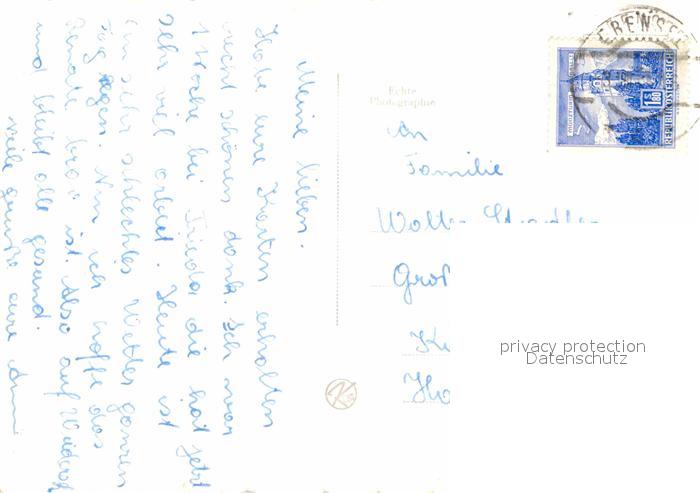 Meine lieben.
Habe eure Karten erhalten
recht schönen dank. Ich war
1 Woche bei Frieda die hat jetzt
sehr viel arbeit. Heute ist
ein sehr schlechtes Wetter ganzen
Tag regen. Nun ich hoffe das
Renate brav ist. Also auf Wiederseh
und bleibt alle gesund.
viele grüße eure
Echte
Photographie
An
Familie
Walter
Groß
K
Ho
EBENSEE
REPUBLIK ÖSTERREICH
S 1.80
privacy protection
Datenschutz